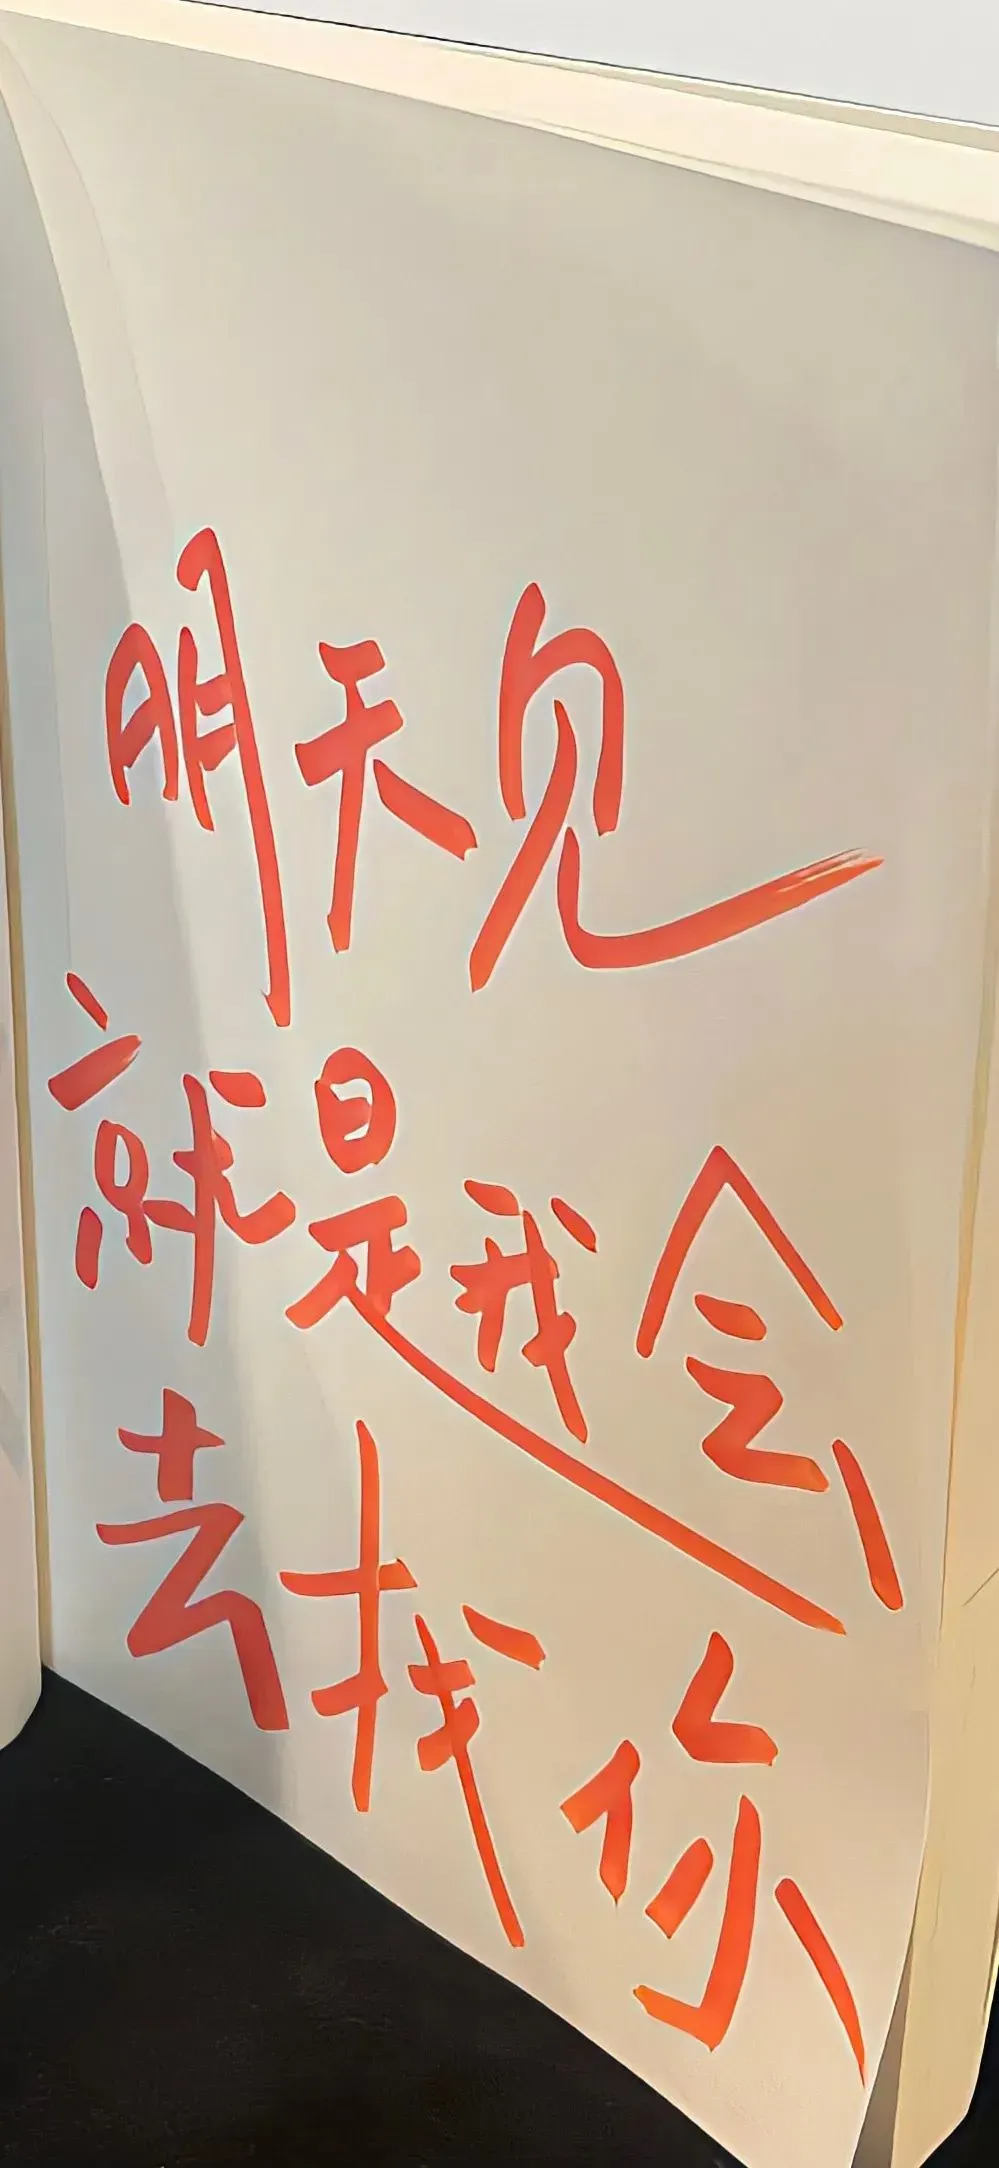 明天见
就是我会
去找你